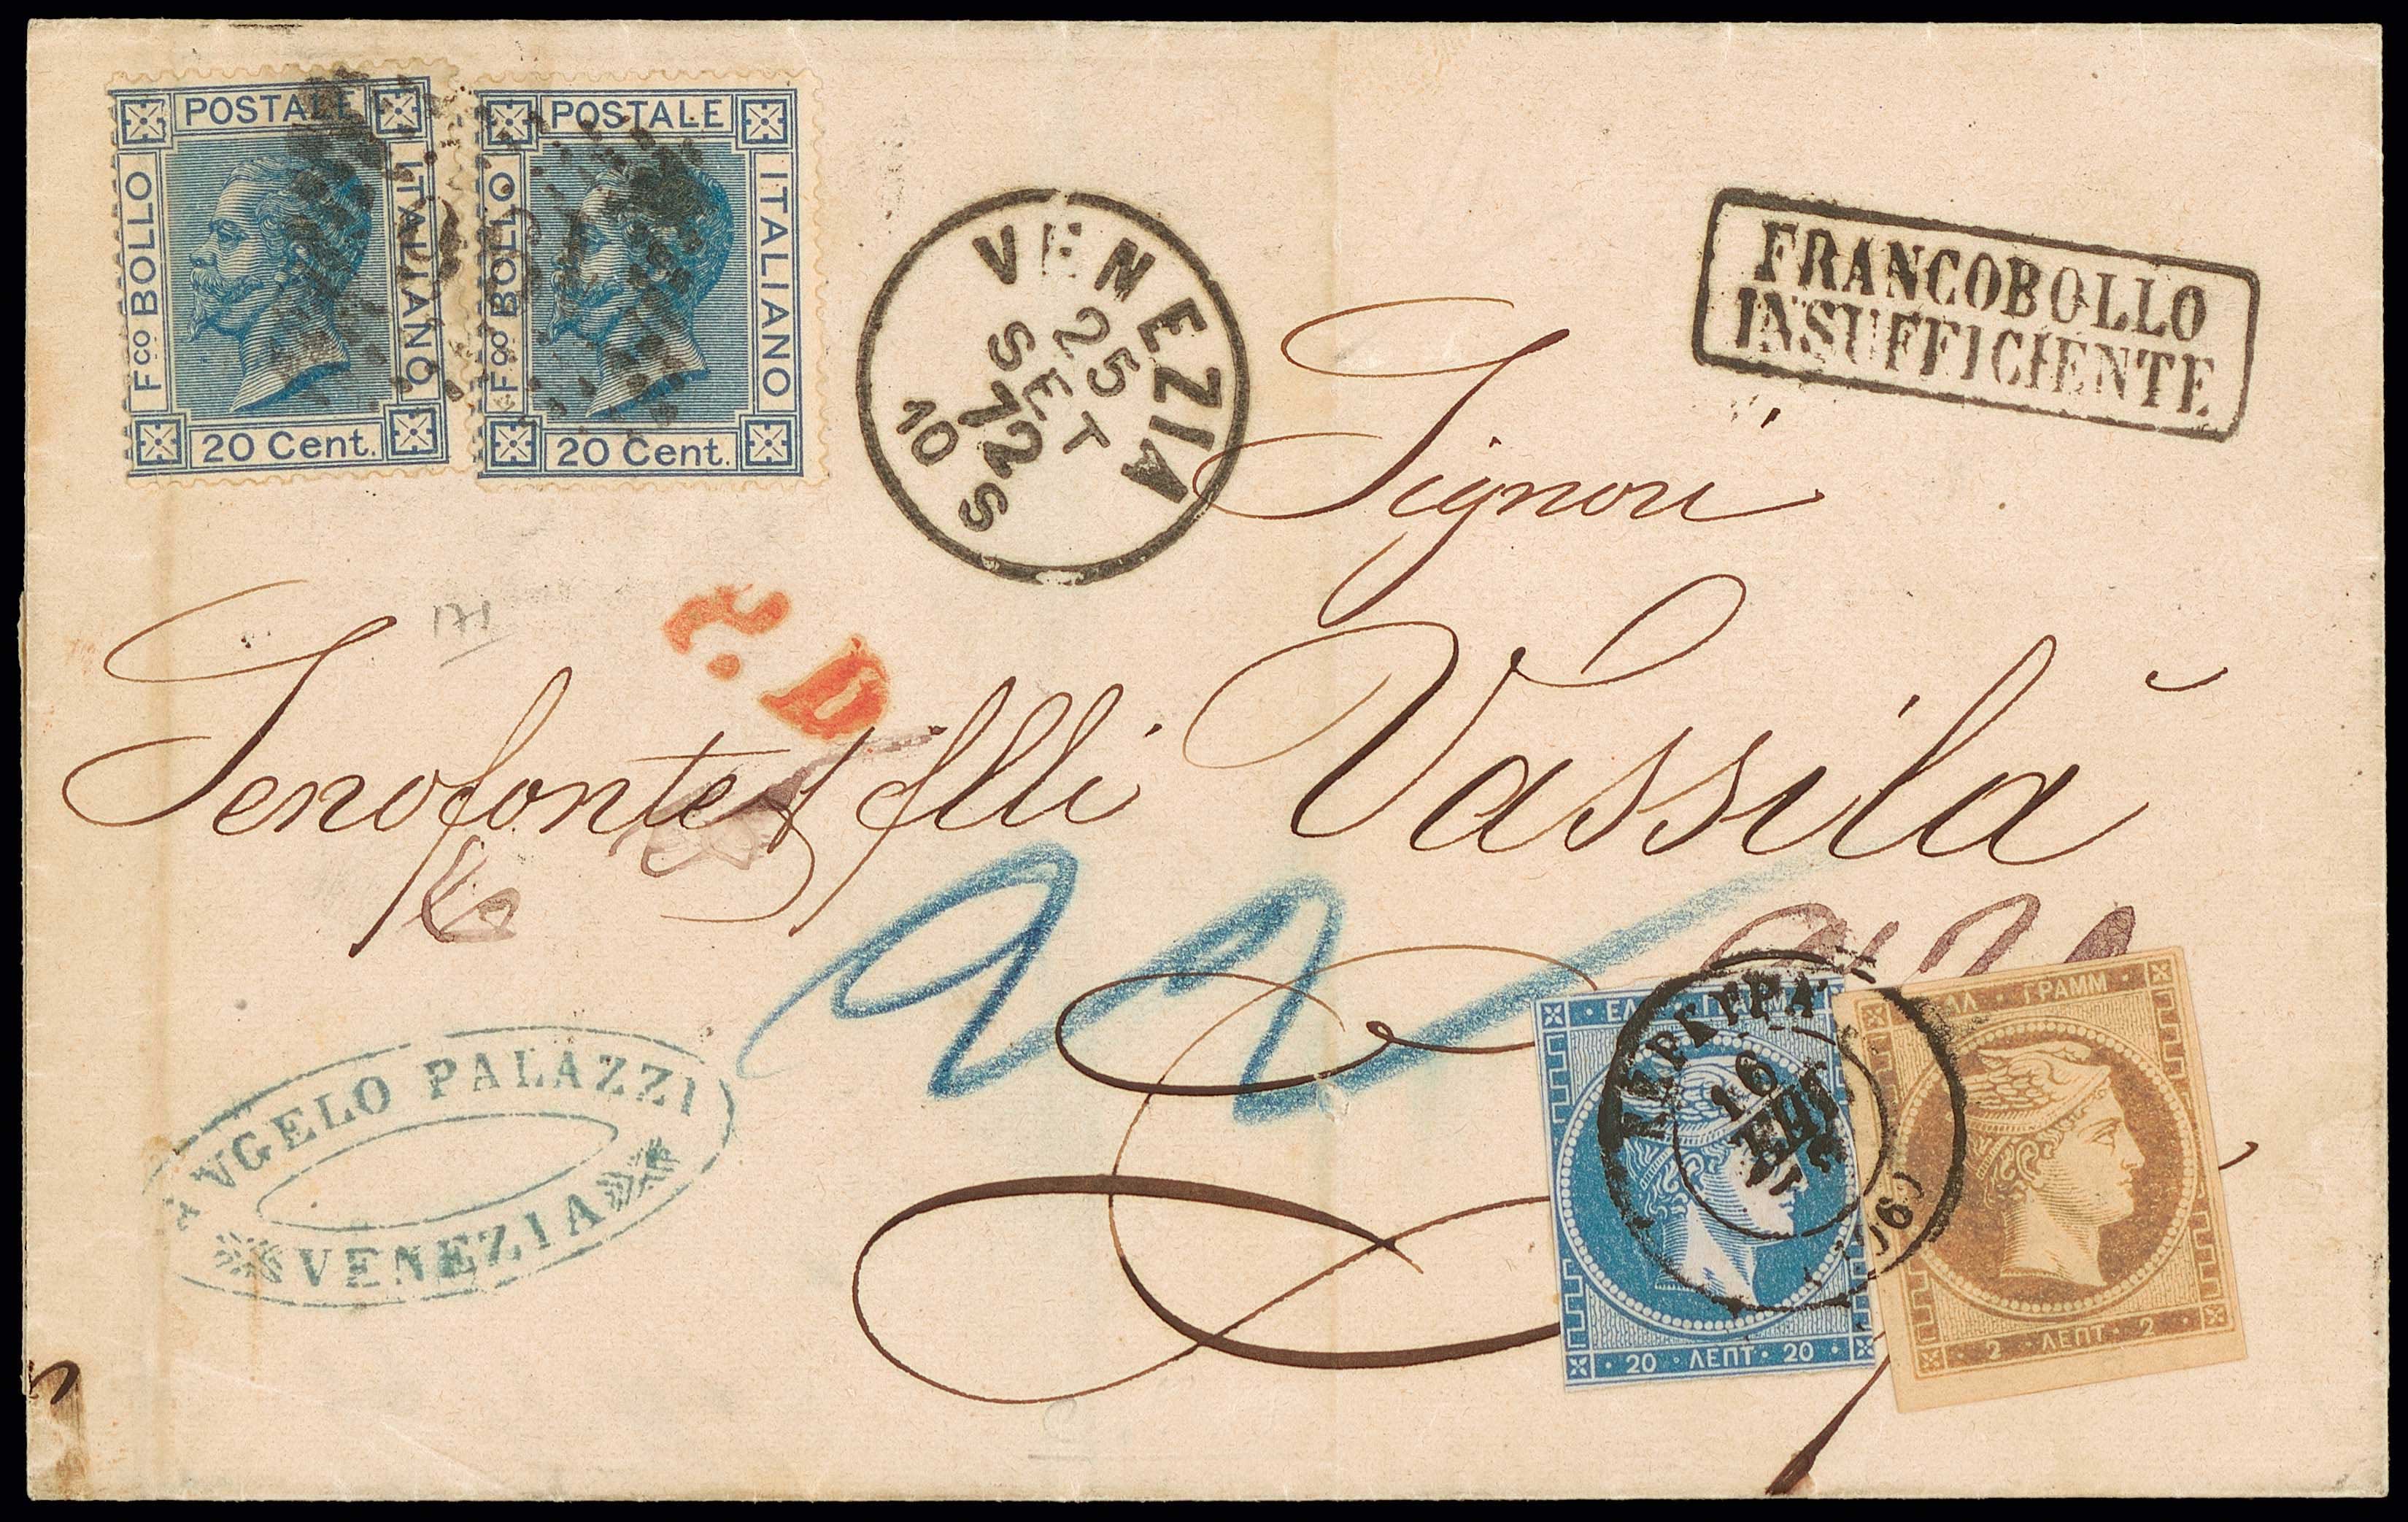 POSTALE
Fco BOLLO
ITALIANO
20 Cent.
POSTALE
Fco BOLLO
ITALIANO
20 Cent.
VENEZIA
25
SET
72
10 S
FRANCOBOLLO
INSUFFICIENTE
Signori
171
P.D.
Senofonte flli Vassilà
22
ANGELO PALAZZI
VENEZIA
ΕΛΛ · ΓΡΑΜΜ ·
20 · ΛΕΠΤ · 20 ·
ΕΛΛ · ΓΡΑΜΜ ·
2 · ΛΕΠΤ · 2 ·
ΚΕΡΚΥΡΑ
16
(106)